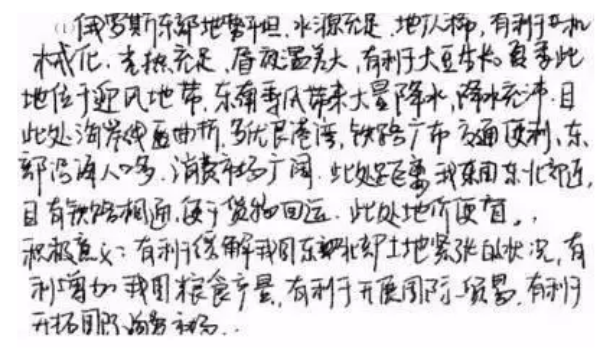 (1) 俄罗斯东部地势平坦,水源充足,地广人稀,有利于机
械化,光热充足,昼夜温差大,有利于大豆生长.夏季此
地位于迎风地带,东南季风带来大量降水,降水充沛.且
此处海岸线曲折,多优良港湾,铁路广布 交通便利,东
部沿海人口多,消费市场广阔.此处距离我东国东北部近,
且有铁路相通,便于货物回运.此处地价便宜.
积极意义:有利于缓解我国东部北部土地紧张的状况,有
利增加我国粮食产量,有利于开展国际贸易,有利于
开拓国际消费市场.